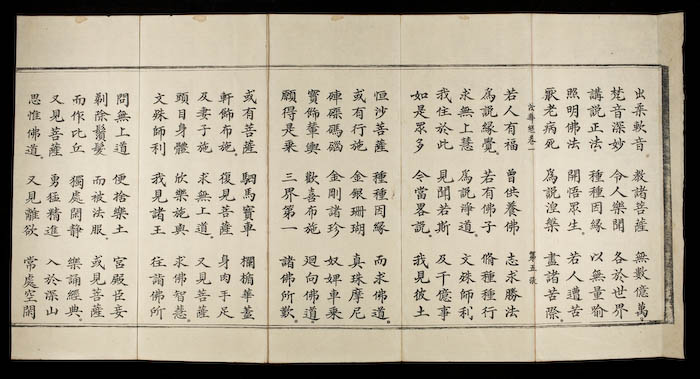 出柔軟音 教諸菩薩 無數億萬
梵音深妙 令人樂聞 各於世界
講說正法 種種因緣 以無量喻
照明佛法 開悟眾生 若人遭苦
厭老病死 為說涅槃 盡諸苦際
法華經卷一 第五張
若人有福 曾供養佛 志求勝法
為說緣覺 若有佛子 脩種種行
求無上慧 為說淨道 文殊師利
我住於此 見聞若斯 及千億事
如是眾多 今當畧說 我見彼土
恒沙菩薩 種種因緣 而求佛道
或有行施 金銀珊瑚 真珠摩尼
硨磲碼碯 金剛諸珍 奴婢車乘
寶飾輦輿 歡喜布施 迴向佛道
願得是乘 三界第一 諸佛所歎
或有菩薩 駟馬寶車 欄楯華蓋
軒飾布施 復見菩薩 身肉手足
及妻子施 求無上道 又見菩薩
頭目身體 欣樂施與 求佛智慧
文殊師利 我見諸王 往詣佛所
問無上道 便捨樂土 宮殿臣妾
剃除鬚髮 而被法服 或見菩薩
而作比丘 獨處閑靜 樂誦經典
又見菩薩 勇猛精進 入於深山
思惟佛道 又見離欲 常處空閑